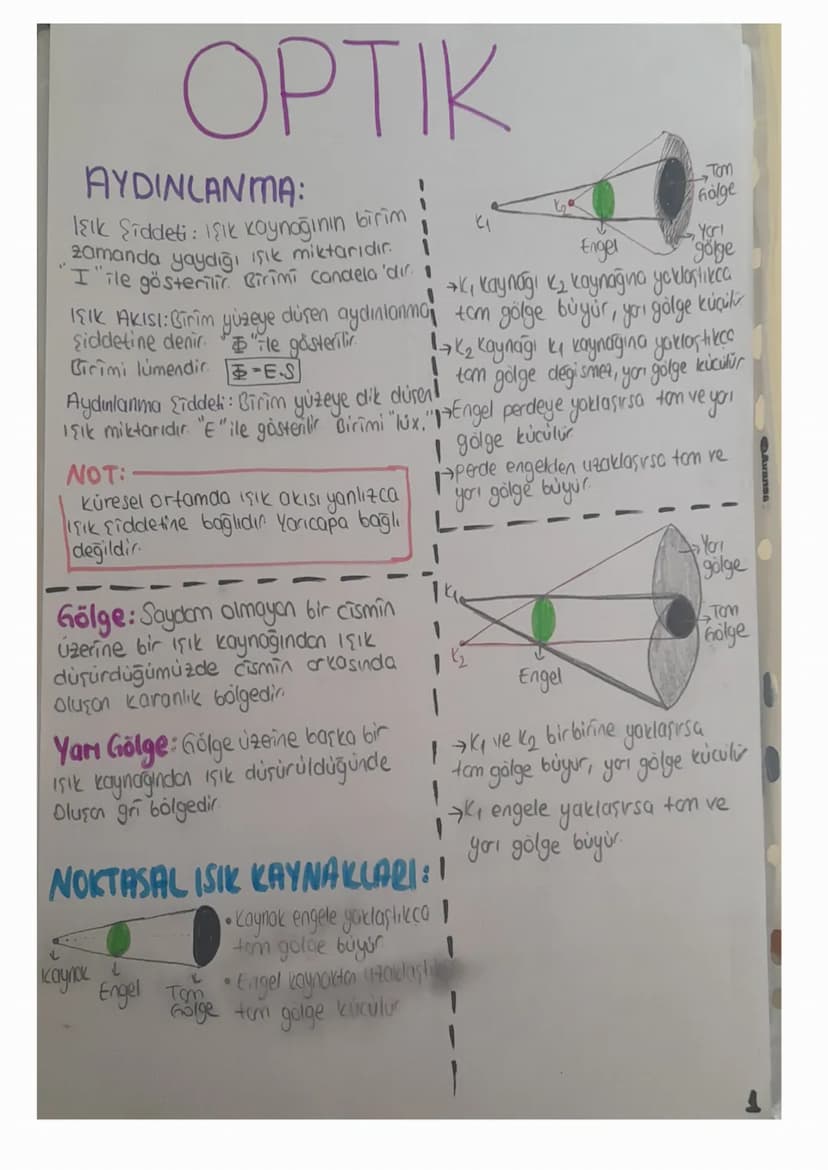 OPTIK
AYDINLANMA:
Işık Şiddeti: Işık kaynağının birim
zamanda yaydığı ışık miktarıdır.
"I" ile gösterilir. Birimi candela'dır.
IŞIK AKISI: Birim yüzeye düşen aydınlanma
şiddetine denir. "Φ" ile gösterilir.
Birimi lümendir. Φ=E.S
Aydınlanma Şiddeti: Birim yüzeye dik düşen
ışık miktarıdır. "E" ile gösterilir Birimi "lüx."
NOT:
Küresel ortamda ışık akısı yanlızca
ışık şiddetine bağlıdır. Yarıçapa bağlı
değildir.
Gölge: Saydam olmayan bir cismin
üzerine bir ışık kaynağından ışık
düşürdüğümüzde cismin arkasında
oluşan karanlık bölgedir.
Yarı Gölge: Gölge üzeine başka bir
ışık kaynağından ışık düşürüldüğünde
oluşan gri bölgedir.
NOKTASAL IŞIK KAYNAKLARI:
Kaynak
Engel
Tam
Gölge
• Kaynak engele yaklaştıkça
tam gölge büyür
• Engel kaynaktan
tam gölge küçülür
K1
K2
Engel
Tam
Gölge
Yarı
gölge
→K1 kaynağı K2 kaynağına yaklaştıkca
tam gölge büyür, yarı gölge küçülür
→K2 kaynağı K1 kaynağına yaklaştıkça
tam gölge değişmez, yarı gölge küçülür
→Engel perdeye yaklaşırsa tam ve yarı
gölge küçülür
→perde engelden uzaklaşırsa tam ve
yarı gölge büyür.
K1
K2
Engel
Yarı
gölge
Tam
Gölge
→K1 ve K2 birbirine yaklaşırsa
tam gölge büyür, yarı gölge küçülür
→K1 engele yaklaşırsa tam ve
yarı gölge büyür.
1